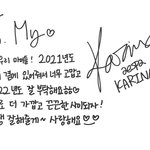 To. My
우리 마이들! 2021년도
곁에 있어줘서 너무 고맙고
22년도 잘 부탁해요ㅎㅎ♡
더 가깝고 끈끈한 사이되자!
잘해줄게~ 사랑해요♡♡
Karina
aespa
KARINA